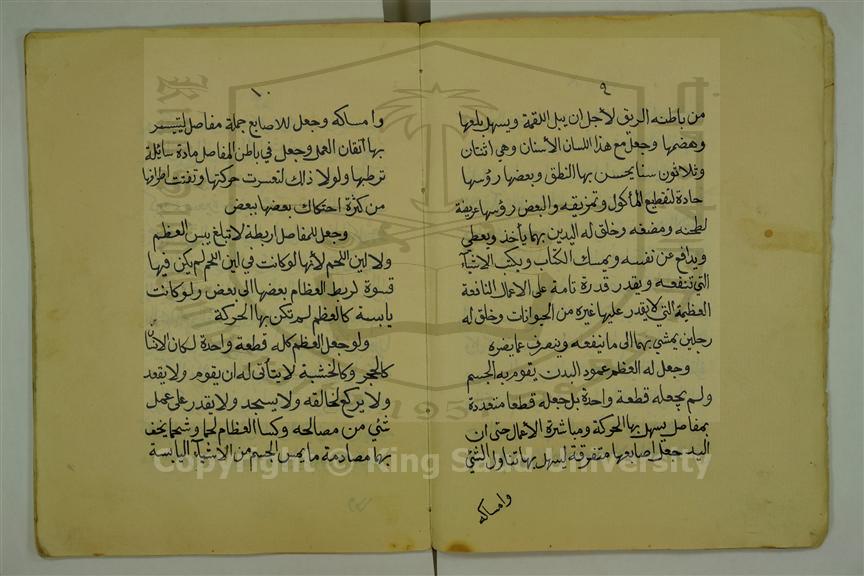 ٩
من باطنه الريق لأجل ان يبل اللقمة ويسهل بلعها
وهضمها وجعل مع هذا اللسان الأسنان وهي اثنتان
وثلاثون سنا يحسن بها النطق وبعضها رؤسها
حادة لتقطيع المأكول وتمزيقه والبعض رؤسها عريضة
لطحنه ومضغه وخلق له اليدين بهما يأخذ ويعطي
ويدافع عن نفسه ويمسك الكتاب ويكتب الاشيآء
التي تنفعه ويقدر قدرة تامة على الاعمال النافعة
العظيمة التي لا يقدر عليها غيره من الحيوانات وخلق له
رجلين يمشي بهما الى ما ينفعه وينصرف عما يضره
وجعل له العظم عمود البدن يقوم به الجسم
ولم يجعله قطعة واحدة بل جعله قطعا متعددة
بمفاصل يسهل بها الحركة ومباشرة الاعمال حتى ان
اليد جعل اصابعها متفرقة ليسهل بها تناول الشئ
وامساكه
١٠
وامساكه وجعل للاصابع جملة مفاصل ليتيسر
بها اتقان العمل وجعل في باطن المفاصل مادة سائلة
ترطبها ولولا ذلك لتعسرت حركتها وتفتت اطرافها
من كثرة احتكاك بعضها ببعض
وجعل للمفاصل اربطة لا تبلغ يبس العظم
ولا لين اللحم لأنها لو كانت في لين اللحم لم يكن فيها
قسوة لربط العظام بعضها الى بعض ولو كانت
يابسة كالعظم لم تكن بها الحركة
ولو جعل العظم كله قطعة واحدة لكان الانسان
كالحجر وكالخشبة لا يتأتى له ان يقوم ولا يقعد
ولا يركع لخالقه ولا يسجد ولا يقدر على عمل
شئ من مصالحه وكسا العظام لحما وشحما يخف
بهما مصادمة ما يمس الجسم من الاشيآء اليابسة
1957
Copyright © King Saud University